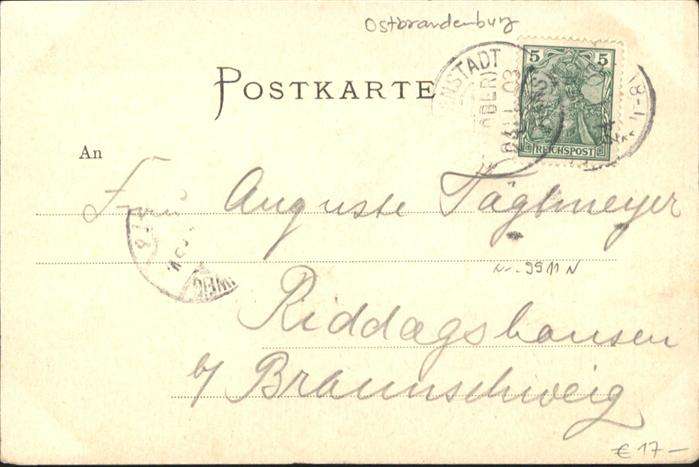 Ostbrandenburg
POSTKARTE
5 5
REICHSPOST
An
Frau Auguste Tägtmeyer
Nr. 9911 N
Riddagshausen
b/ Braunschweig
€ 17 —